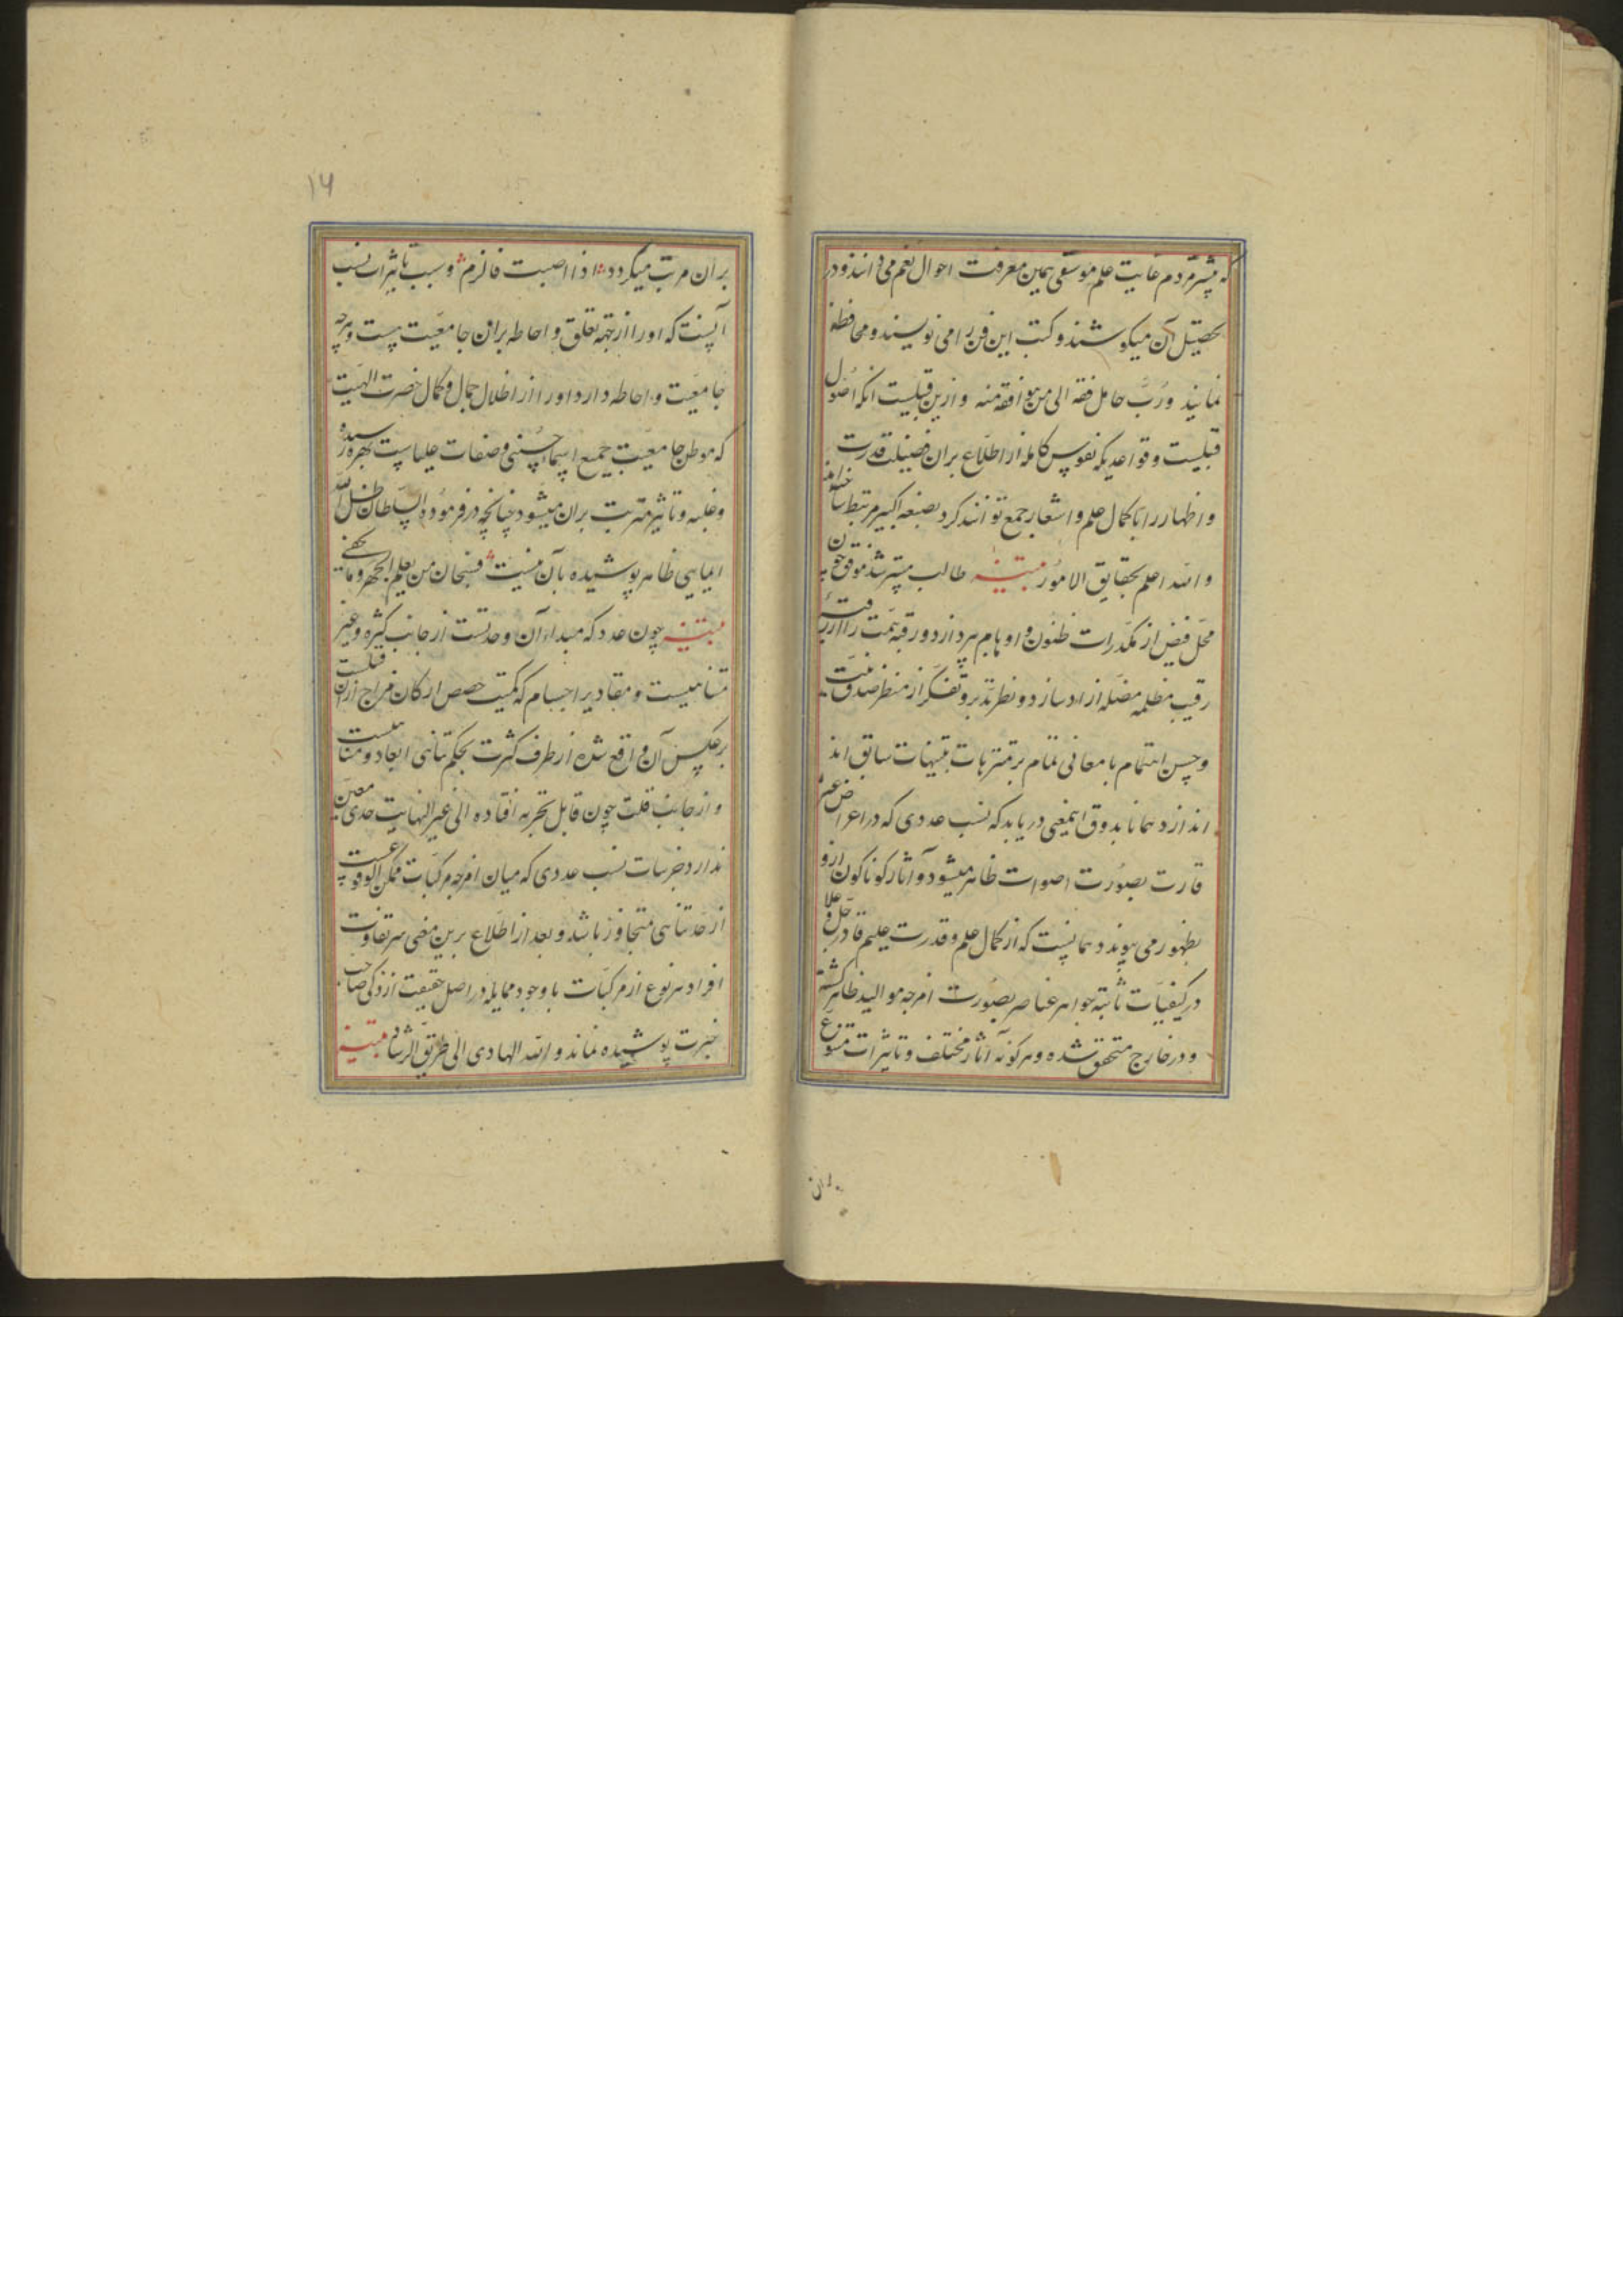 که بیشتر مردم غایت علم موسقی همین معرفت احوال نغم می دانند و در
تحصیل آن میکوشند و کتب این فن را می نویسند و محافظه
نمایند و رُبَّ حامل فقه الی من هو افقه منه و ازین قبیلست انکه اصول
قبلیست و قواعدیکه نفوس کامله از اطلاع بران فضیلت قدرت
و اظهار را با کمال علم و اشعار جمع توانند کرد بصنعه اکبیر مرتبط ساخته اند
و الله اعلم بحقایق الامور تنبیه طالب مسترشد موفق چون
محل فیض از مکدرات ظنون و اوهام بپردازد و رقبه همت را از
رقیب مظلمه مضله ازاد سازد و نظر تدبر و تفکر از منظر صدق نیت
و حسن اهتمام با معانی تمام بر متنزهات تنبیهات سابق اند
اندازد همانا بذوق اینمعنی دریابد که نسب عددی که در اعراض غیر
قارت بصورت اصوات ظاهر میشود و آثار کوناکون ازو
بظهور می پیوندد همانست که از کمال علم و قدرت علیم قادر جل و علا
در کیفیات ثابته جواهر عناصر بصورت امزجه موالید ظاهر کشته
و در خارج متحقق شده و هر کونه اثار مختلف و تاثیرات متنوع
بران
۱۶
بران مرتب میکردد اذا اصبت فالزم و سبب تاثیرات نسب
آنست که او را از جهة تعلق و احاطه بران جامعیت هست و هر چه
جامعیت و احاطه دارد او را از اظلال جمال و کمال حضرت الهیت
که موطن جامعیت جمیع اسماء حسنی و صفات علیاست بهره رسیده
و غلبه و تاثیر مترتب بران میشود چنانچه در فرموده السلطان ظل الله
ایمایی ظاهر پوشیده بآن هست فسبحان من یعلم الجهر و ما یخفی
تنبیه چون عدد که مبداء آن وحدتست از جانب کثره و غیر
متناهیست و مقادیر اجسام که کمیت حصص ارکان مزاج ازان قبیلست
بر عکس آن واقع شده از طرف کثرت بحکم تناهی ابعاد متناهیست
و از جانب قلت چون قابل تجزیه افتاده الی غیر النهایت حدی معین
ندارد جزییات نسب عددی که میان امزجه مرکبات ممکن الوقوعست
از حد تناهی متجاوز باشد و بعد از اطلاع برین معنی سر تفاوت
افراد هر نوع از مرکبات با وجود مماثله در اصل حقیقت از ذکی صاحب
خبرت پوشیده نماند و الله الهادی الی طریق الرشاد تنبیه